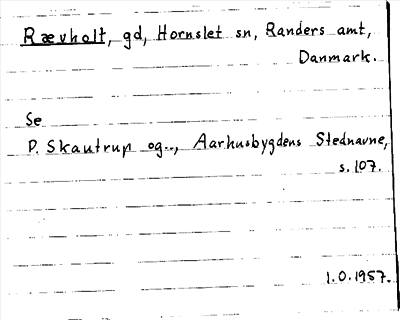 Rævholt, gd, Hornslet sn, Randers amt,
Danmark.
Se
P. Skautrup og.., Aarhusbygdens Stednavne,
s. 107.
1.0.1957.